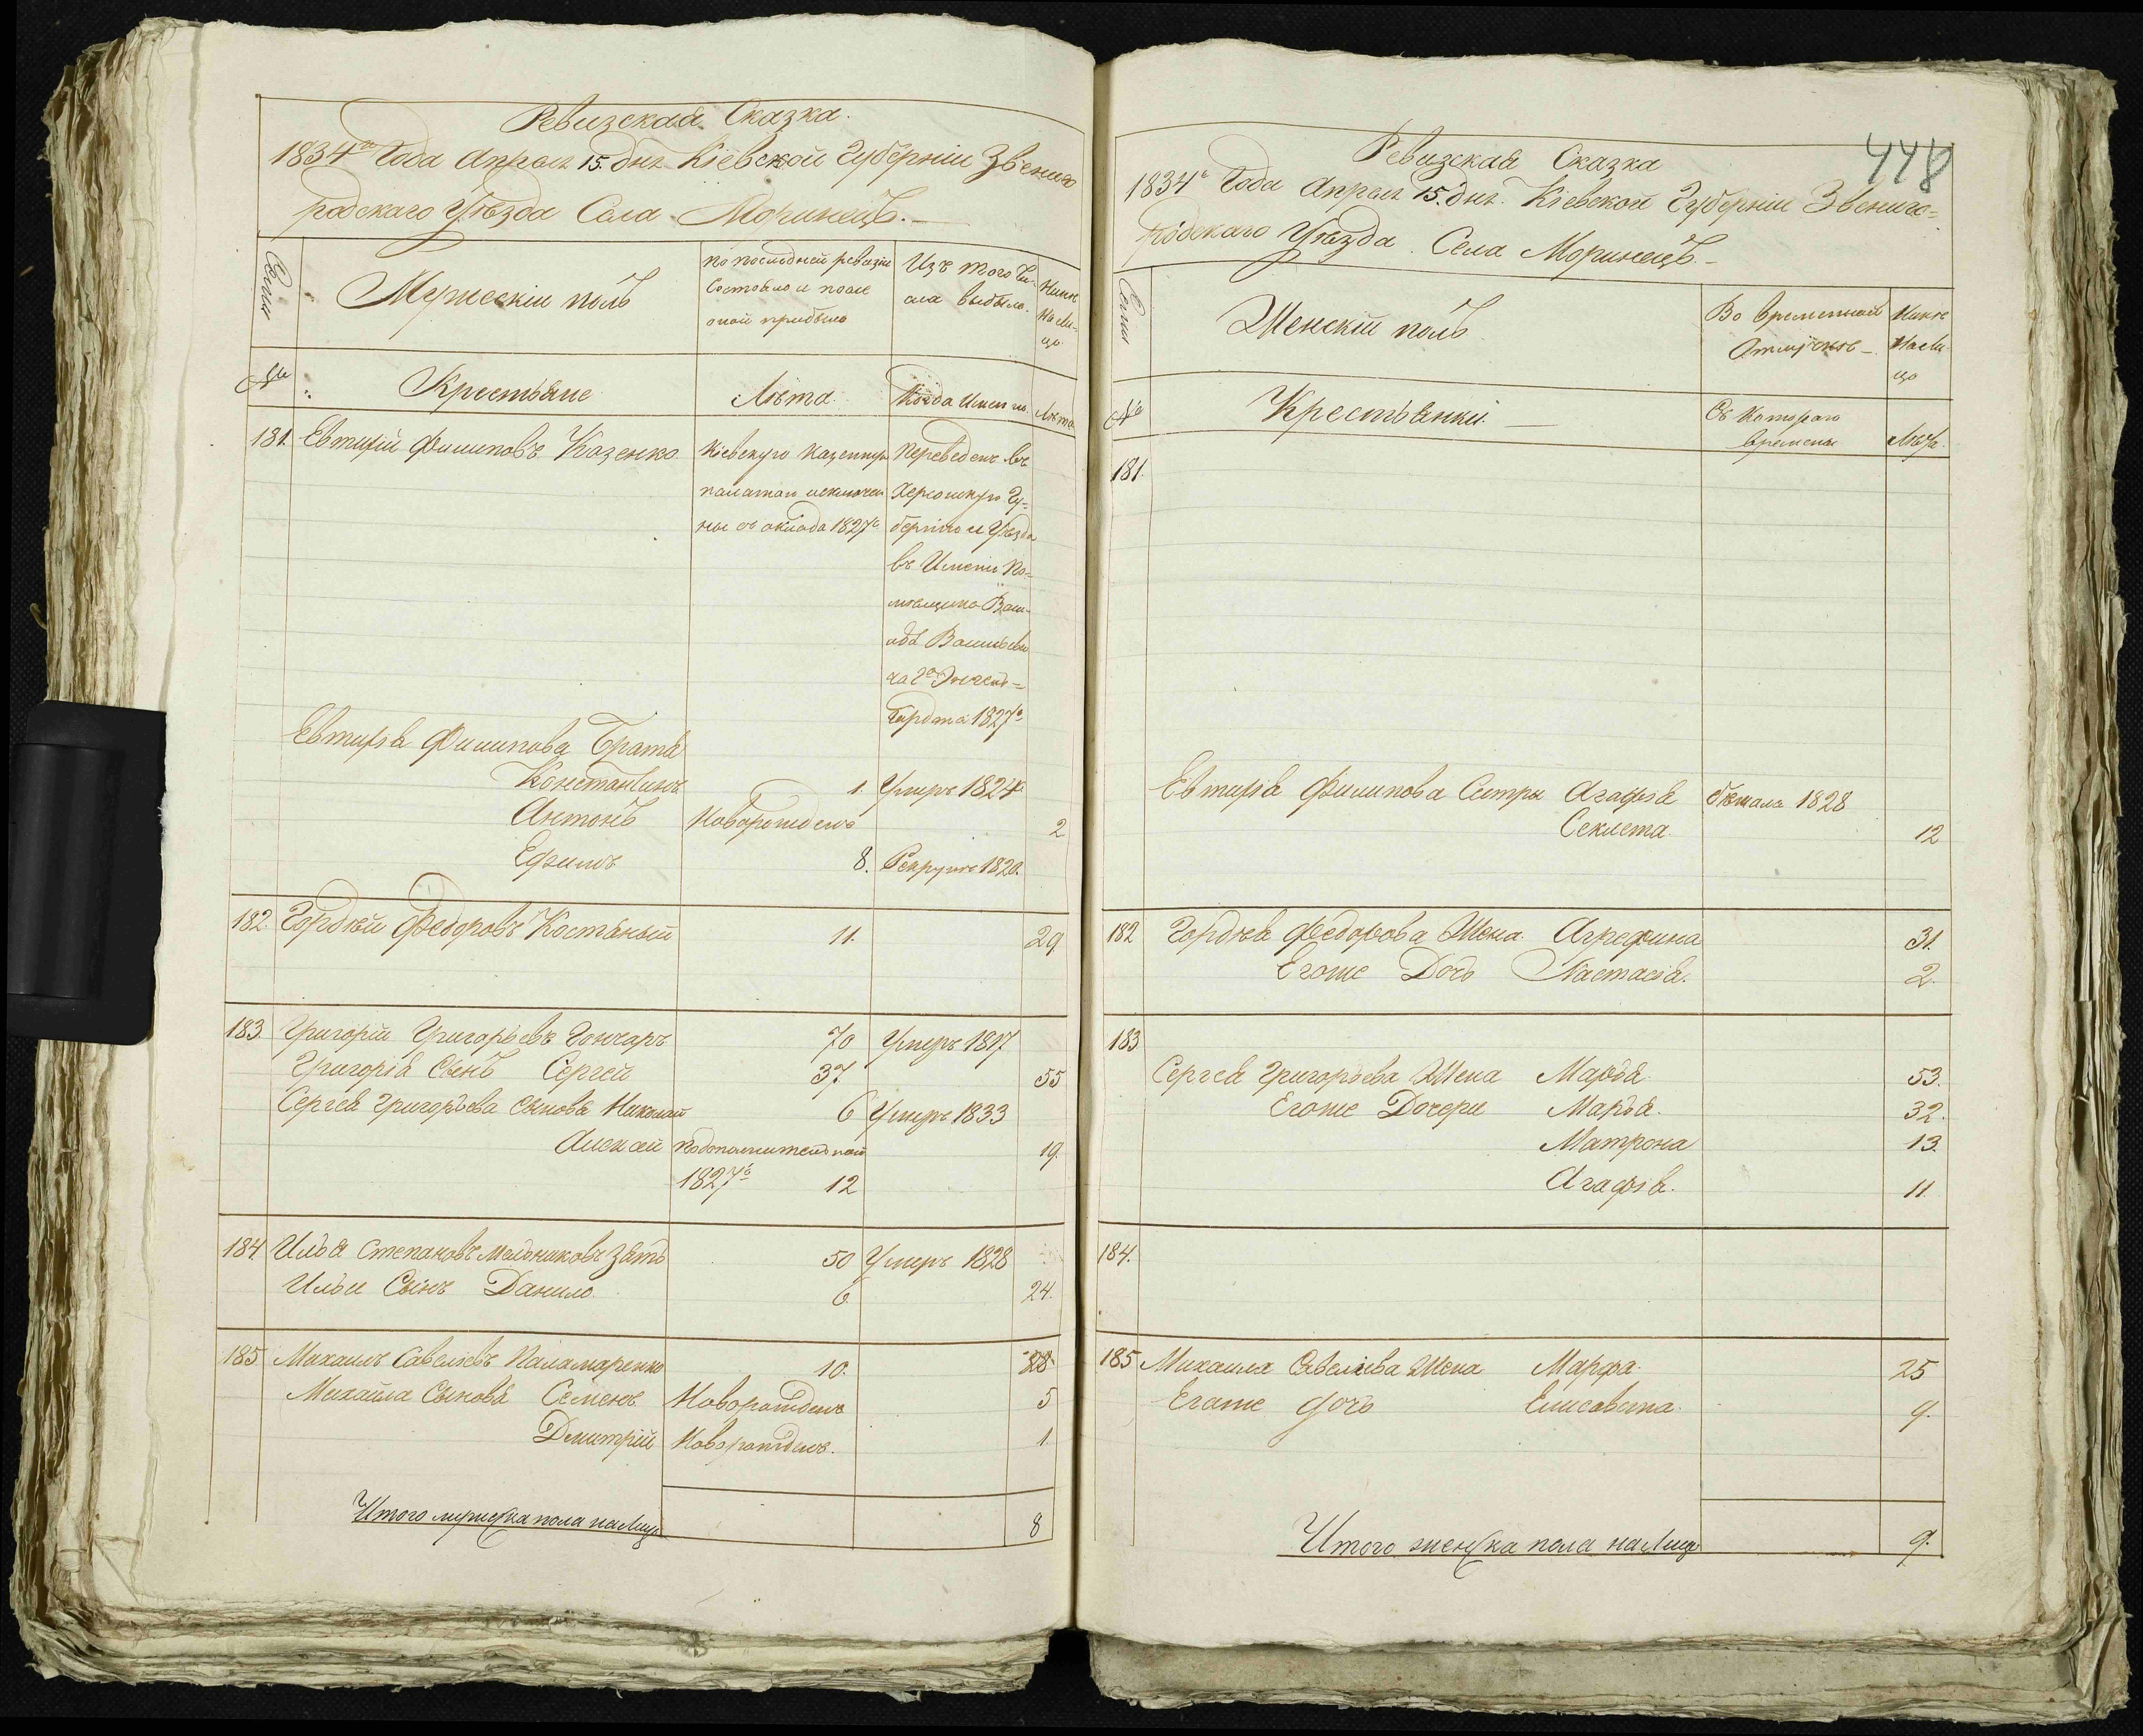 Ревизская Сказка.
1834го Года Апреля 15. дня Кіевской Губерніи Звениго
родскаго Уѣзда Села Моринецъ.
Семьи
Мужескій полъ
по последней ревизіи
Состояло и после
оной прибыло
Изъ того Чи-
сла выбыло.
Ныне
на ли-
цо.
№
Крестьяне
Лѣта
Когда Имен но
Лѣта
181. Евтифій Филиповъ Козенко
Кіевскую Казенную
палатою исключен
ны съ оклада 1827г
Переведенъ въ
Херсонскую Гу=
бернію и Уѣзда
въ Имени По=
мѣщика
Васильеви
ча
гардта 1827г.
Евтифія Филипова Братя
Константинъ 1. Умеръ 1824.
Антонъ Новорожденъ 2
Ефимъ 8. Рекрутъ 1820.
182. Гордѣй Федоровъ Костяный 11. 29
183. Григорій Григорьевъ Гончаръ 70 Умеръ 1817
Григорія Сынъ Сергей 37 55
Сергея Григорьева Сыновя Николай 6 Умеръ 1833
Алексей подополнительной 19.
1827г 12
184. Илья Степановъ Мельниковъ Зять 50 Умеръ 1828
Ильи Сынъ Данило 6. 24.
185 Михаилъ Савелѣевъ Паламаренко 10. 28
Михайла Сыновя Семенъ Новорожденъ 5
Дмитрій Новорожденъ. 1
Итого мужеска пола на Лицо 8
448
Ревизская Сказка
1834г Года Апреля 15. дня. Кіевской Губерніи Звениго=
родскаго Уѣзда. Села Моринецъ.
Семьи
Женскій полъ
Во временной
Отлучке
Ныне
на ли-
цо
№
Крестьянки.
Съ Котораго
времени
Лѣта.
181.
Евтифія Филипова Систры Агафія бѣжала 1828
Секлета. 12
182 Гордѣя Федорова Жена Агрефина 31.
Егоже Дочь Настасія. 2.
183
Сергея Григорьева Жена Марья 53.
Егоже Дочери Марья. 32.
Матрона 13.
Агафія. 11
184.
185 Михаила Савелиева Жена Марфа. 25
Егоже дочь Елисавета. 9.
Итого женска пола на Лицо 9.